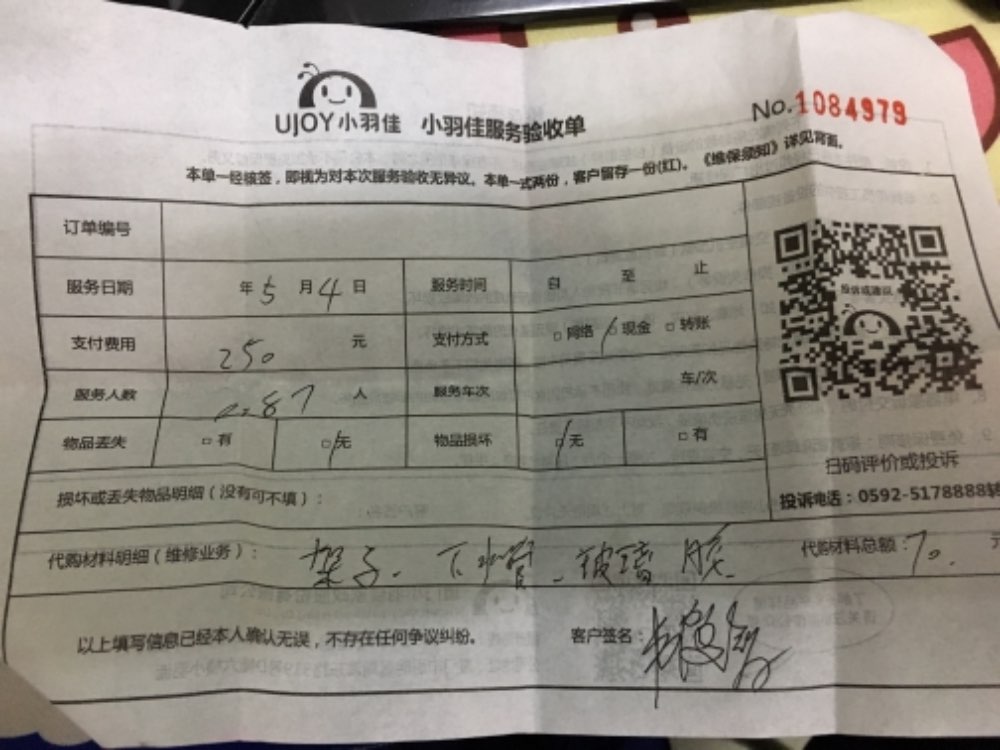 UJOY小羽佳 小羽佳服务验收单
No.1084979
本单一经核签，即视为对本次服务验收无异议。本单一式两份，客户留存一份(红)。《维保须知》详见背面。
订单编号
服务日期 年 5 月 4 日 服务时间 自 至 止
支付费用 250 元 支付方式 □网络 □现金 □转账
服务人数 人 服务车次 车/次
物品丢失 □有 □无 物品损坏 □无 □有
投诉或建议
扫码评价或投诉
投诉电话：0592-5178888转
损坏或丢失物品明细（没有可不填）：
代购材料明细（维修业务）： 架子、下水管、玻璃胶 代购材料总额：70. 元
以上填写信息已经本人确认无误，不存在任何争议纠纷。 客户签名：